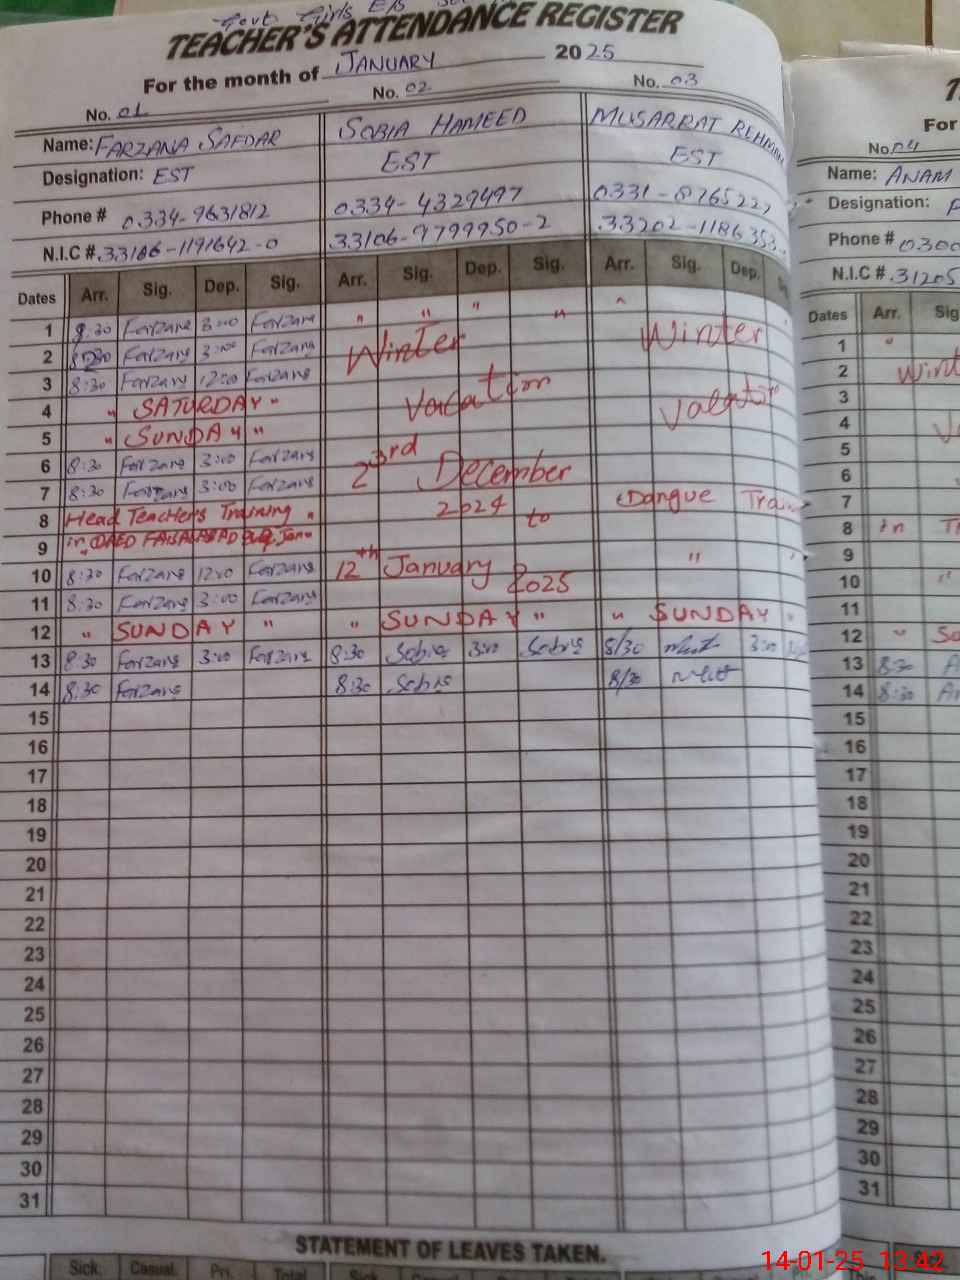 Govt Girls E/S
TEACHER'S ATTENDANCE REGISTER
For the month of JANUARY 2025
No. 01 No. 02 No. 03
Name: FARZANA SAFDAR SOBIA HAMEED MUSARRAT REHMAN
Designation: EST EST EST
Phone # 0334-9631812 0334-4329497 0331-8765227
N.I.C #. 33106-1191642-0 33106-9799950-2 33202-1186353
Dates Arr. Sig. Dep. Sig. Arr. Sig. Dep. Sig. Arr. Sig. Dep.
1 8:30 Farzana 3:00 Farzana " " " " "
2 8:30 Farzana 3:00 Farzana Winter Winter
3 8:30 Farzana 12:00 Farzana
4 " SATURDAY " Vacation
5 " SUNDAY "
6 8:30 Farzana 3:00 Farzana 23rd December
7 8:30 Farzana 3:00 Farzana 2024 to Dangue
8 Head Teacher's Training "
9 in QAED FAISALABAD
10 8:30 Farzana 12:00 Farzana 12th January 2025 "
11 8:30 Farzana 3:00 Farzana
12 " SUNDAY " " SUNDAY " " SUNDAY "
13 8:30 Farzana 3:00 Farzana 8:30 Sobia 3:00 Sobia 8/30 3:00
14 8:30 Farzana 8:30 Sobia 8/30
15
16
17
18
19
20
21
22
23
24
25
26
27
28
29
30
31
STATEMENT OF LEAVES TAKEN.
Sick. Casual. Pri. Total
For
No. 04
Name: ANAM
Designation:
Phone # 0300
N.I.C #. 31205
Dates Arr.
1 "
2
3
4
5
6
7
8 in
9
10 "
11
12 "
13 8:30
14 8:30
15
16
17
18
19
20
21
22
23
24
25
26
27
28
29
30
31
14-01-25 13:42